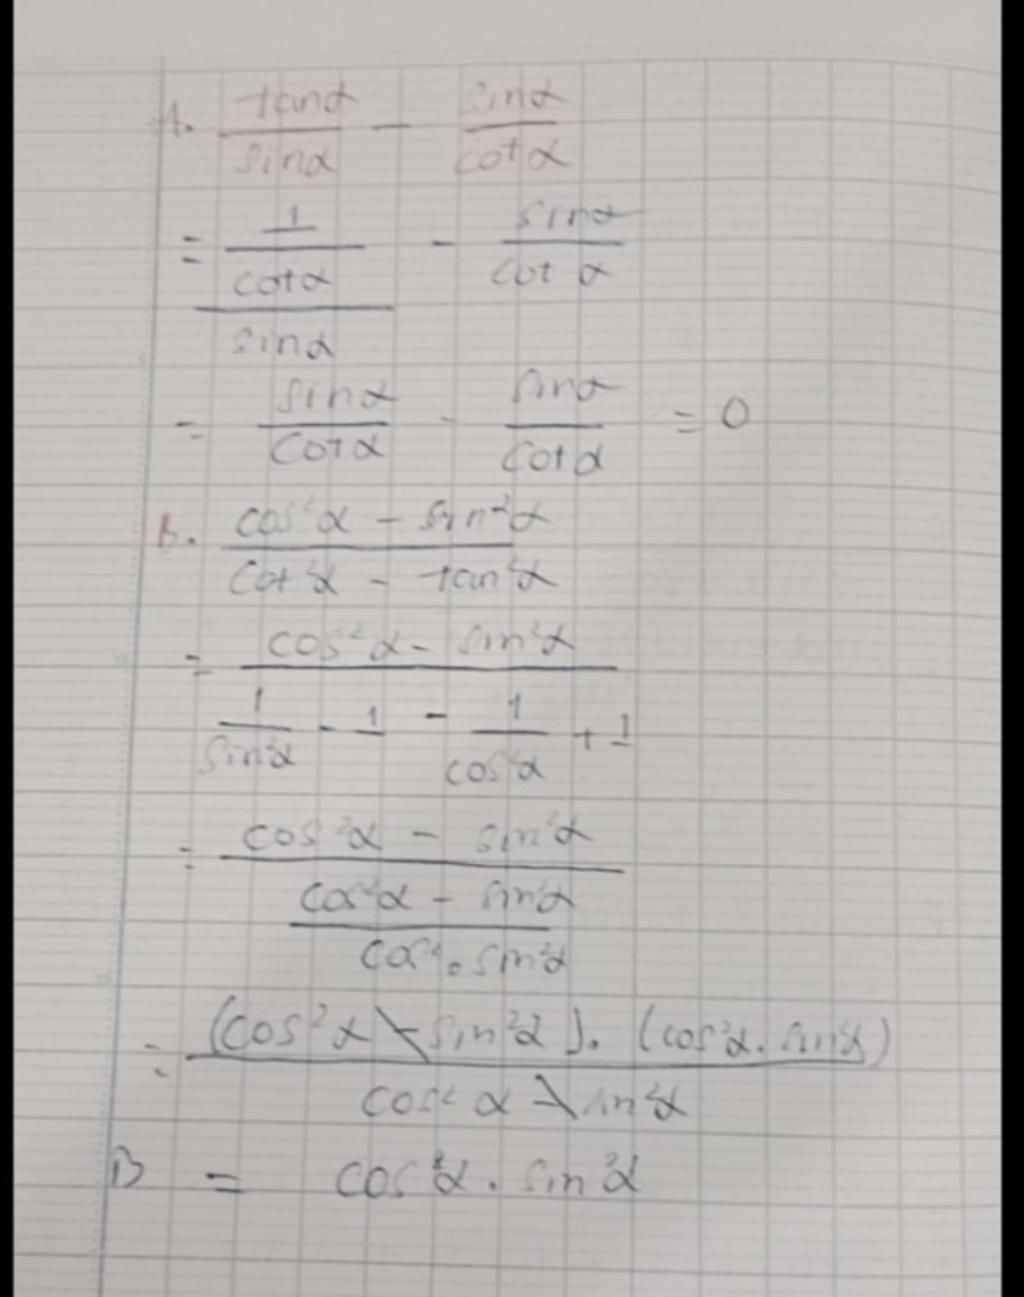 A. tanα/sinα - sinα/cotα
= (1/cotα)/sinα - sinα/cot α
= sinα/cotα - sinα/cotα = 0
B. (cos²α - sin²α)/(cot²α - tan²α)
= (cos²α - sin²α)/(1/sin²α - 1 - 1/cos²α + 1)
= (cos²α - sin²α)/((cos²α - sin²α)/(cos². sin²α))
= (cos²α - sin²α). (cos²α. sin²α)/(cos²α - sin²α)
B = cos²α. sin²α